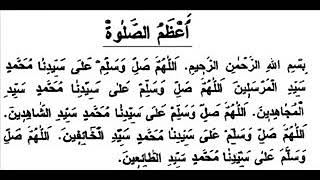 أَعْظَمُ الصَّلٰوةْ
بِسْمِ اللهِ الرَّحْمٰنِ الرَّحِيْمِ. اَللّٰهُمَّ صَلِّ وَسَلِّمْ عَلٰى سَيِّدِنَا مُحَمَّدٍ
سَيِّدِ الْمُرْسَلِيْنَ. اَللّٰهُمَّ صَلِّ وَسَلِّمْ عَلٰى سَيِّدِنَا مُحَمَّدٍ سَيِّدِ
الْمُجَاهِدِيْنَ. اَللّٰهُمَّ صَلِّ وَسَلِّمْ عَلٰى سَيِّدِنَا مُحَمَّدٍ سَيِّدِ الشَّاهِدِيْنَ.
اَللّٰهُمَّ صَلِّ وَسَلِّمْ عَلٰى سَيِّدِنَا مُحَمَّدٍ سَيِّدِ الْخَائِفِيْنَ. اَللّٰهُمَّ صَلِّ
وَسَلِّمْ عَلٰى سَيِّدِنَا مُحَمَّدٍ سَيِّدِ الطَّائِعِيْنَ.